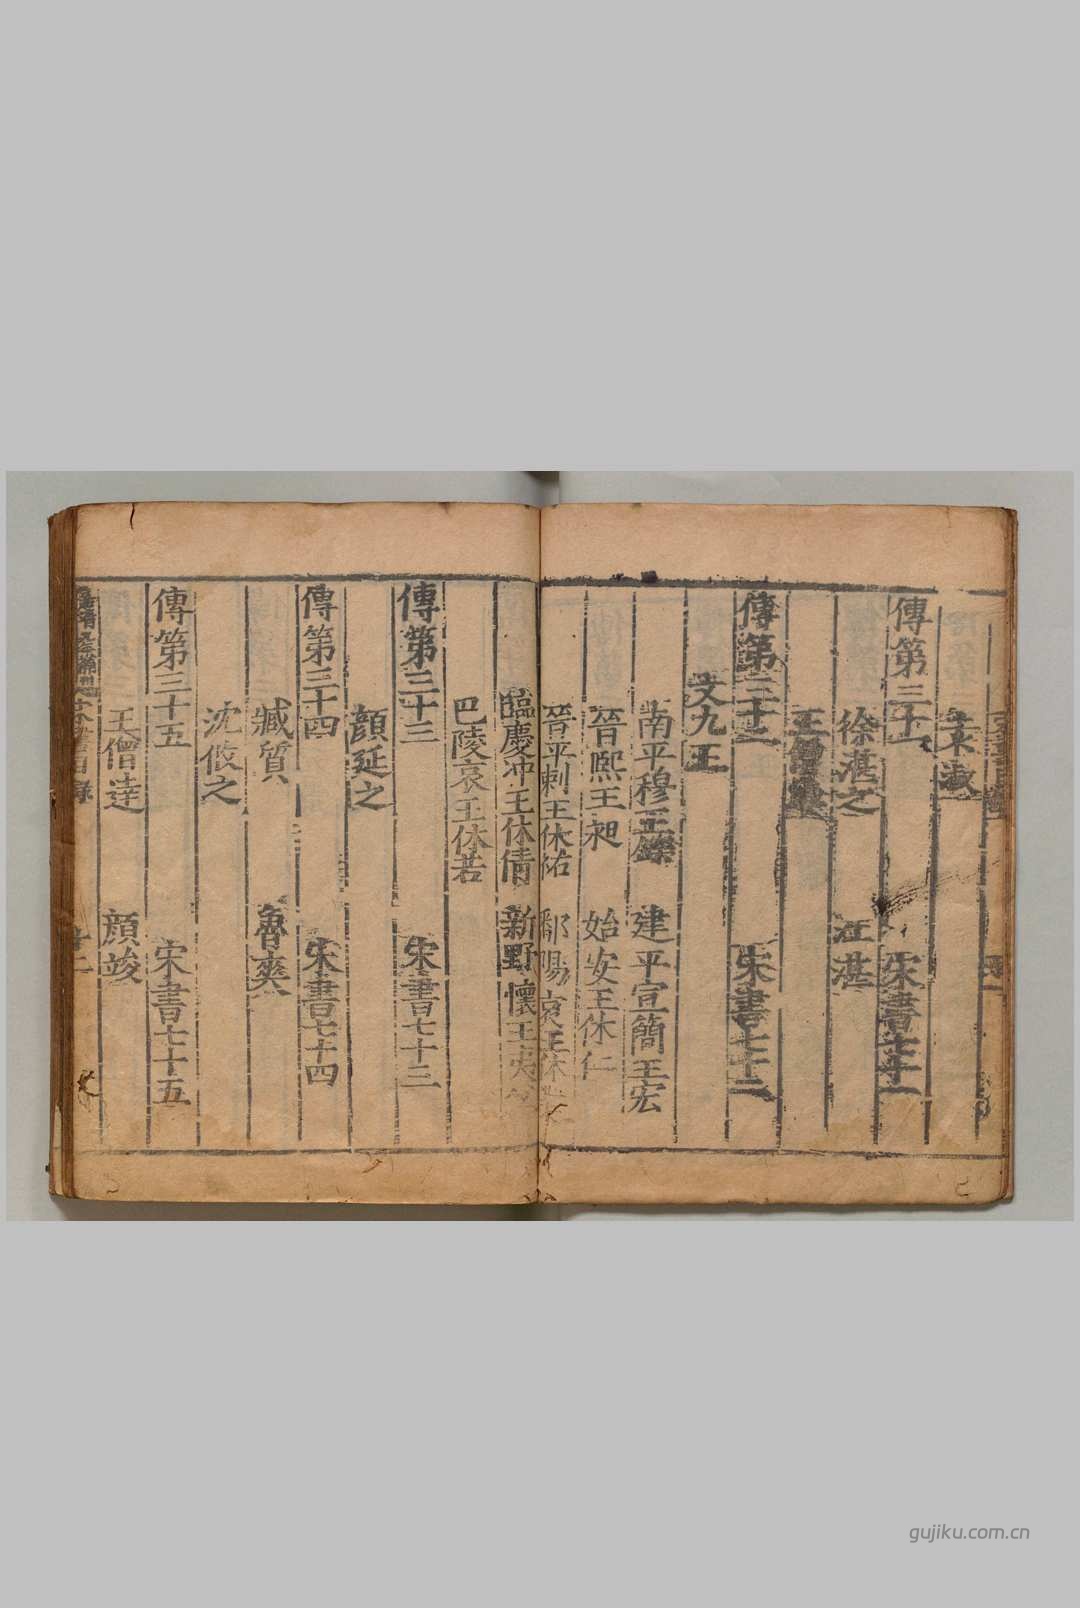 宋書目錄
袁淑
傳第三十一　宋書七十一
徐湛之　江湛
王僧綽
傳第三十二　宋書七十二
文九王
南平穆王鑠　建平宣簡王宏
晉熙王昶　始安王休仁
晉平剌王休祐　鄱陽哀王休業
臨慶冲王休倩　新野懷王夷父
巴陵哀王休若
傳第三十三　宋書七十三
顏延之
傳第三十四　宋書七十四
臧質　魯爽
沈攸之
傳第三十五　宋書七十五
王僧達　顏竣
宋書目錄
gujiku.com.cn